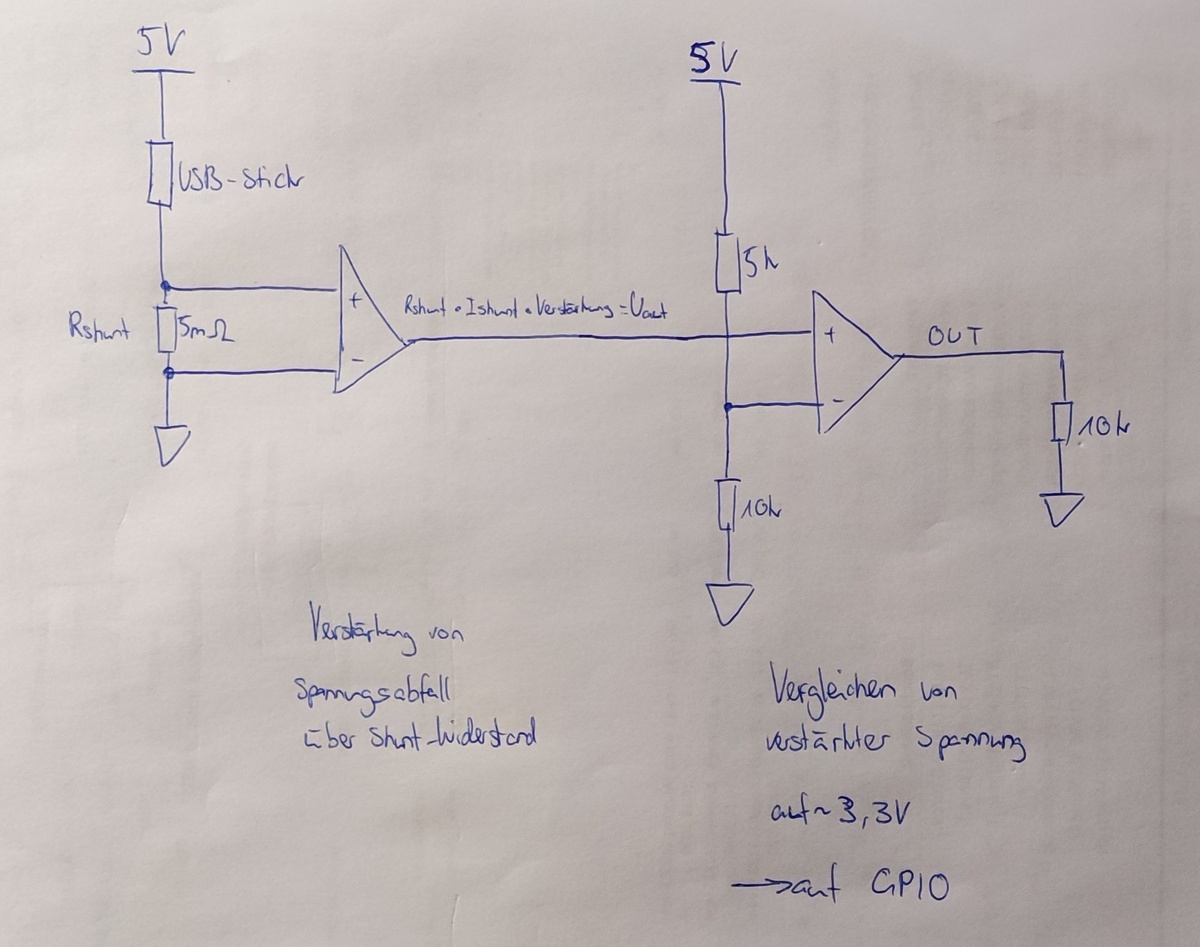 5V
5V
USB-Stick
5k
+
Rshunt • Ishunt • Verstärkung = Uaut
Rshunt
5mΩ
+
OUT
-
-
10k
10k
Verstärkung von
Spannungsabfall
über Shunt-Widerstand
Vergleichen von
verstärkter Spannung
auf ~ 3,3V
→ auf GPIO